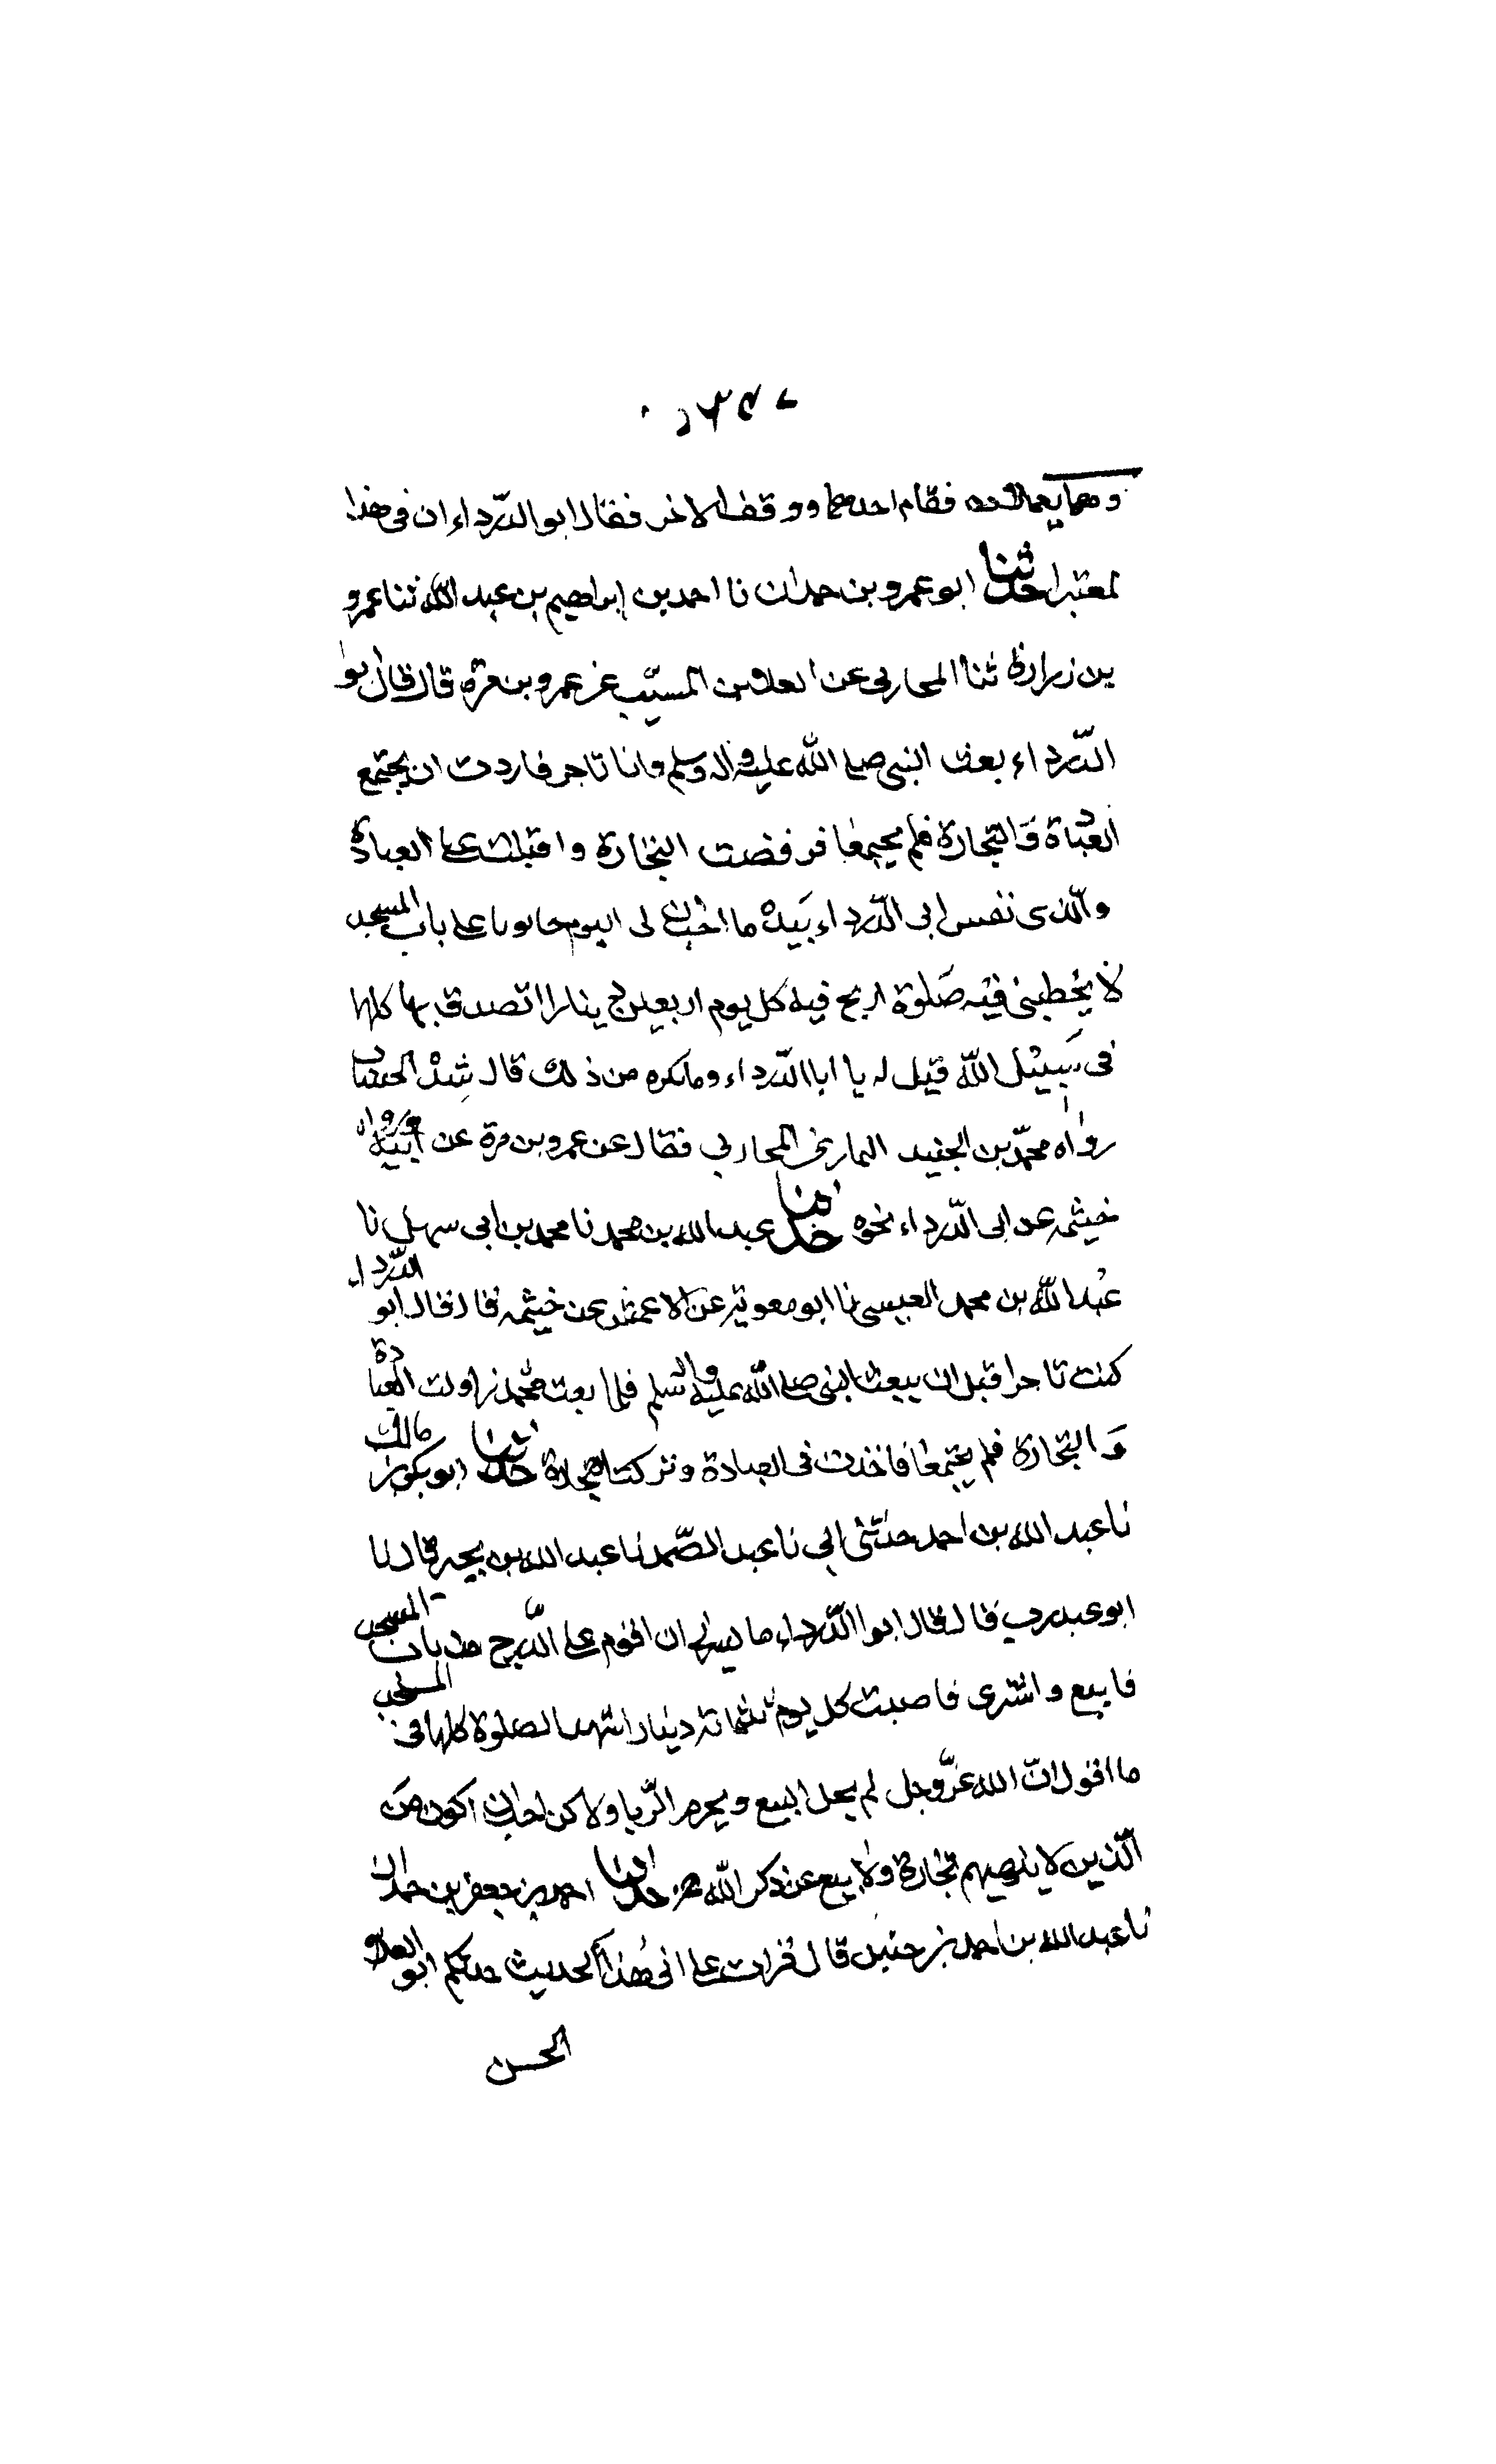 وهما يعملان فقام احدهما ووقف الاخر فقال ابو الدّرداء ان فى هذا
لمعتبرا حدثنا ابو عمرو بن حمدان نا احمد بن إبراهيم بن عبد اللّه ثنا عمرو
بن زرارة ثنا المحاربى عن العلا بن المسيّب عن عمرو بن مرة قال قال ابو
الدّرداء بعث النبى صلى اللّه عليه واله وسلم وانا تاجر فاردت ان يجتمع
العبادة وَالتجارة فلم يجتمعا فرفضت التجارة واقبلت على العبادة
والّذى نفس ابى الدّرداء بَيده ما احب ان لى اليوم حانوتا على باب المسجد
لا يخطينى فيه صَلوة اربح فيه كل يوم اربعين دينارا اتصدق بها كلها
فى سَبيْل اللّه قيل له يا ابا الدّرداء وما تكره من ذلك قال شدْة الحساب
رواه محمّد بن الجنيد التمار عن المحاربي فقال عن عمرو بن مرة عن أبيه ورواه
خيثمه عن ابى الدّرداء نحوه حدثنا عبد الله بن محمد نا محمد بن ابى سهل نا
عبْد اللّه بن محمد العبسى نا ابو معوية عن الاعمش عن خيثمه قال قال ابو الدّرداء
كنت تاجرا قبل ان يبعث النبى صلى اللّه عليه واله وسلم فلما بعث محمّد زاولت العبادة
وَالتجارة فلم يجتمعا فاخذت فى العبادة وتركت التجارة حدثنا ابو بكر بن مالك
نا عبد الله بن احمد حدّثنى ابي نا عبد الصّمد نا عبد الله بن بجير قال نا
ابو عبد رب قال قال ابو الدّرداء ما يسرنى ان اقوم على الدّرج من باب المسجد
فابيع واشترى فاصيب كل يوم ثلثمائة دينار اشهد الصلوة كلها فى المسجد
ما اقول انّ الله عزّوجل لم يحل البيع ويحرم الرّبا ولاكن احب ان اكون مَن
الّذين لا يلهيهم تجارة ولا بيع عن ذكر اللّه حدثنا احمد بن جعفر بن حمدان
نا عبد الله بن احمد بن حنبل قال قرات على ابى هُذا الحديث حدثكم ابو العلاء
الحسن